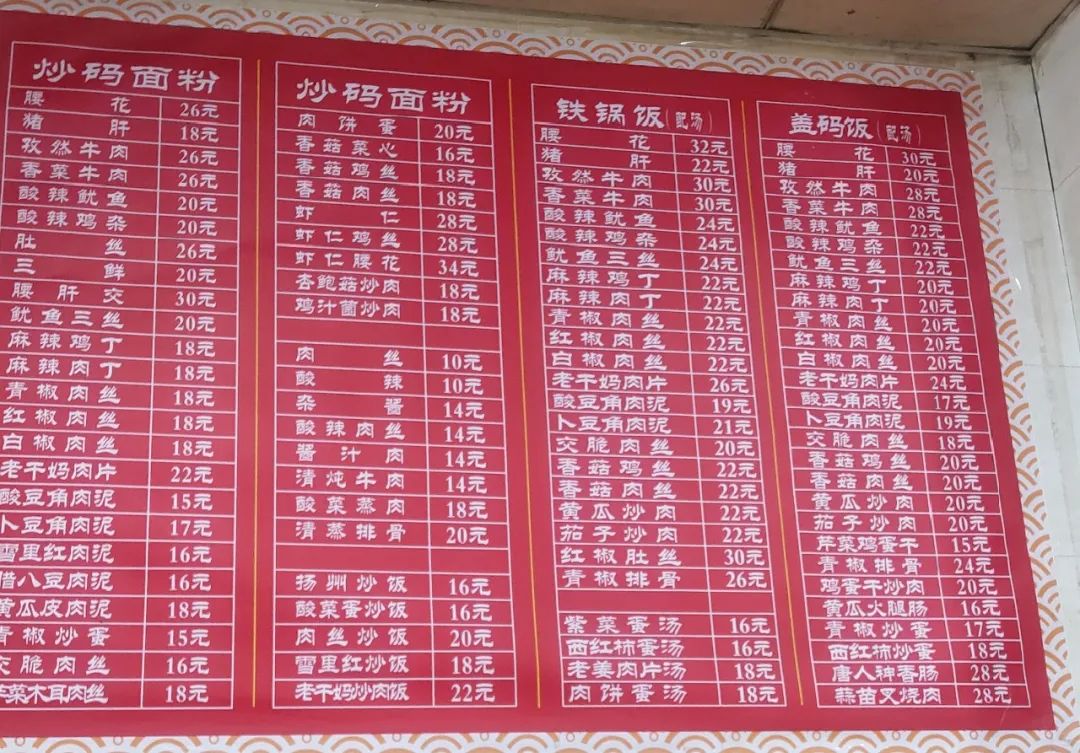 炒码面粉
腰花 26元
猪肝 18元
孜然牛肉 26元
香菜牛肉 26元
酸辣鱿鱼 20元
酸辣鸡杂 20元
肚丝 26元
三鲜 20元
腰肝交 30元
鱿鱼三丝 20元
麻辣鸡丁 18元
麻辣肉丁 18元
青椒肉丝 18元
红椒肉丝 18元
白椒肉丝 18元
老干妈肉片 22元
酸豆角肉泥 15元
卜豆角肉泥 17元
雪里红肉泥 16元
腊八豆肉泥 16元
黄瓜皮肉泥 18元
青椒炒蛋 15元
交脆肉丝 16元
菜木耳肉丝 18元
炒码面粉
肉饼蛋 20元
香菇菜心 16元
香菇鸡丝 18元
香菇肉丝 18元
虾仁 28元
虾仁鸡丝 28元
虾仁腰花 34元
杏鲍菇炒肉 18元
鸡汁菌炒肉 18元
肉丝 10元
酸辣 10元
杂酱 14元
酸辣肉丝 14元
酱汁肉 14元
清炖牛肉 14元
酸菜蒸肉 18元
清蒸排骨 20元
扬州炒饭 16元
酸菜蛋炒饭 16元
肉丝炒饭 20元
雪里红炒饭 18元
老干妈炒肉饭 22元
铁锅饭(配汤)
腰花 32元
猪肝 22元
孜然牛肉 30元
香菜牛肉 30元
酸辣鱿鱼 24元
酸辣鸡杂 24元
鱿鱼三丝 24元
麻辣鸡丁 22元
麻辣肉丁 22元
青椒肉丝 22元
红椒肉丝 22元
白椒肉丝 22元
老干妈肉片 26元
酸豆角肉泥 19元
卜豆角肉泥 21元
交脆肉丝 20元
香菇鸡丝 22元
香菇肉丝 22元
黄瓜炒肉 22元
茄子炒肉 22元
红椒肚丝 30元
青椒排骨 26元
紫菜蛋汤 16元
西红柿蛋汤 16元
老姜肉片汤 18元
肉饼蛋汤 18元
盖码饭(配汤)
腰花 30元
猪肝 20元
孜然牛肉 28元
香菜牛肉 28元
酸辣鱿鱼 22元
酸辣鸡杂 22元
鱿鱼三丝 22元
麻辣鸡丁 20元
麻辣肉丁 20元
青椒肉丝 20元
红椒肉丝 20元
白椒肉丝 20元
老干妈肉片 24元
酸豆角肉泥 17元
卜豆角肉泥 19元
交脆肉丝 18元
香菇鸡丝 20元
香菇肉丝 20元
黄瓜炒肉 20元
茄子炒肉 20元
芹菜鸡蛋干 15元
青椒排骨 24元
鸡蛋干炒肉 20元
黄瓜火腿肠 16元
青椒炒蛋 17元
西红柿炒蛋 18元
唐人神香肠 28元
蒜苗叉烧肉 28元